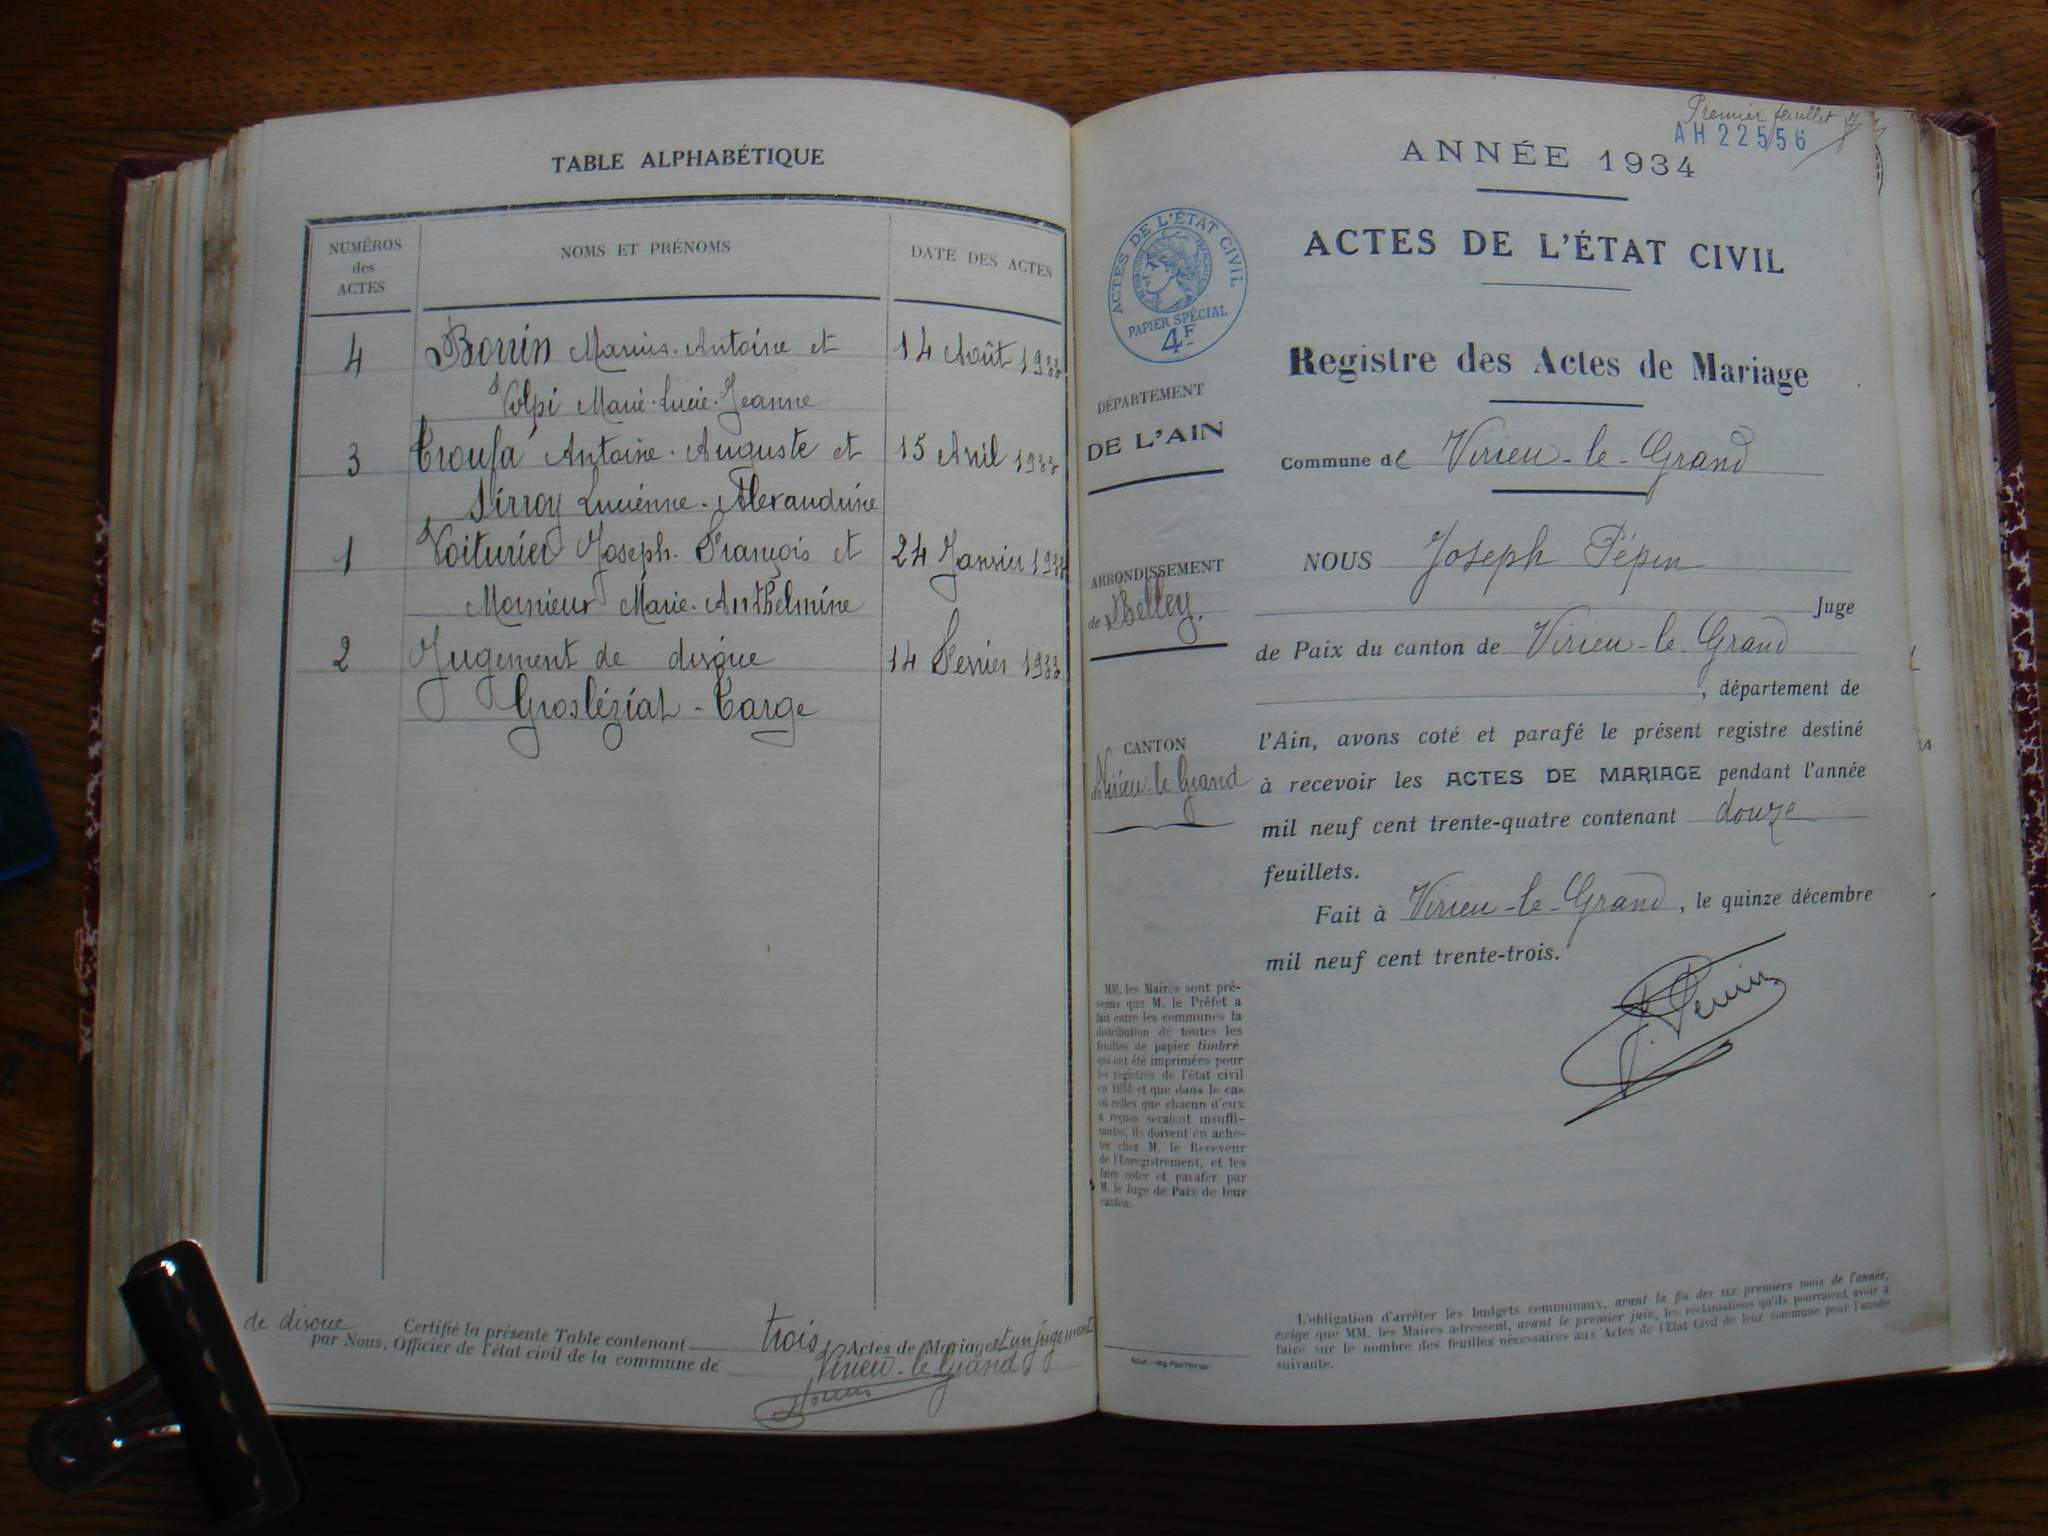 TABLE ALPHABÉTIQUE
NUMÉROS
des
ACTES
NOMS ET PRÉNOMS
DATE DES ACTES
4 Bonin Marius. Antoine et 14 Août 1933
Volpi Marie. Lucie. Jeanne
3 Antoine. Auguste et 15 Avril 1933
Sirroy Lucienne. Alexandrine
1 Voiturier Joseph. François et 24 Janvier 1933
Monieur Marie. Anthelmine
2 Jugement de disque 14 Fevrier 1933
Groslézial - Targe
de disque Certifié la présente Table contenant trois Actes de Mariage et un jugement
par Nous, Officier de l'état civil de la commune de Virieu-le-Grand
Premier feuillet
AH 22556
ANNÉE 1934
ACTES DE L'ÉTAT CIVIL
Registre des Actes de Mariage
Commune de Virieu-le-Grand
ACTES DE L'ÉTAT CIVIL
PAPIER SPÉCIAL
4F
DÉPARTEMENT
DE L'AIN
ARRONDISSEMENT
de Belley.
CANTON
de Virieu-le-Grand
NOUS Joseph Pépin
Juge
de Paix du canton de Virieu-le-Grand
, département de
l'Ain, avons coté et parafé le présent registre destiné
à recevoir les ACTES DE MARIAGE pendant l'année
mil neuf cent trente-quatre contenant douze
feuillets.
Fait à Virieu-le-Grand, le quinze décembre
mil neuf cent trente-trois.
MM. les Maires sont pré-
venus que M. le Préfet a
fait entre les communes la
distribution de toutes les
feuilles de papier timbré
qui ont été imprimées pour
les registres de l'état civil
en 1934 et que dans le cas
où celles que chacun d'eux
a reçues seraient insuffi-
santes, ils doivent en ache-
ter chez M. le Receveur
de l'Enregistrement, et les
faire coter et parafer par
M. le Juge de Paix de leur
canton.
L'obligation d'arrêter les budgets communaux, avant la fin des six premiers mois de l'année,
exige que MM. les Maires adressent, avant le premier juin, les réclamations qu'ils pourraient avoir à
faire sur le nombre des feuilles nécessaires aux Actes de l'Etat Civil de leur commune pour l'année
suivante.